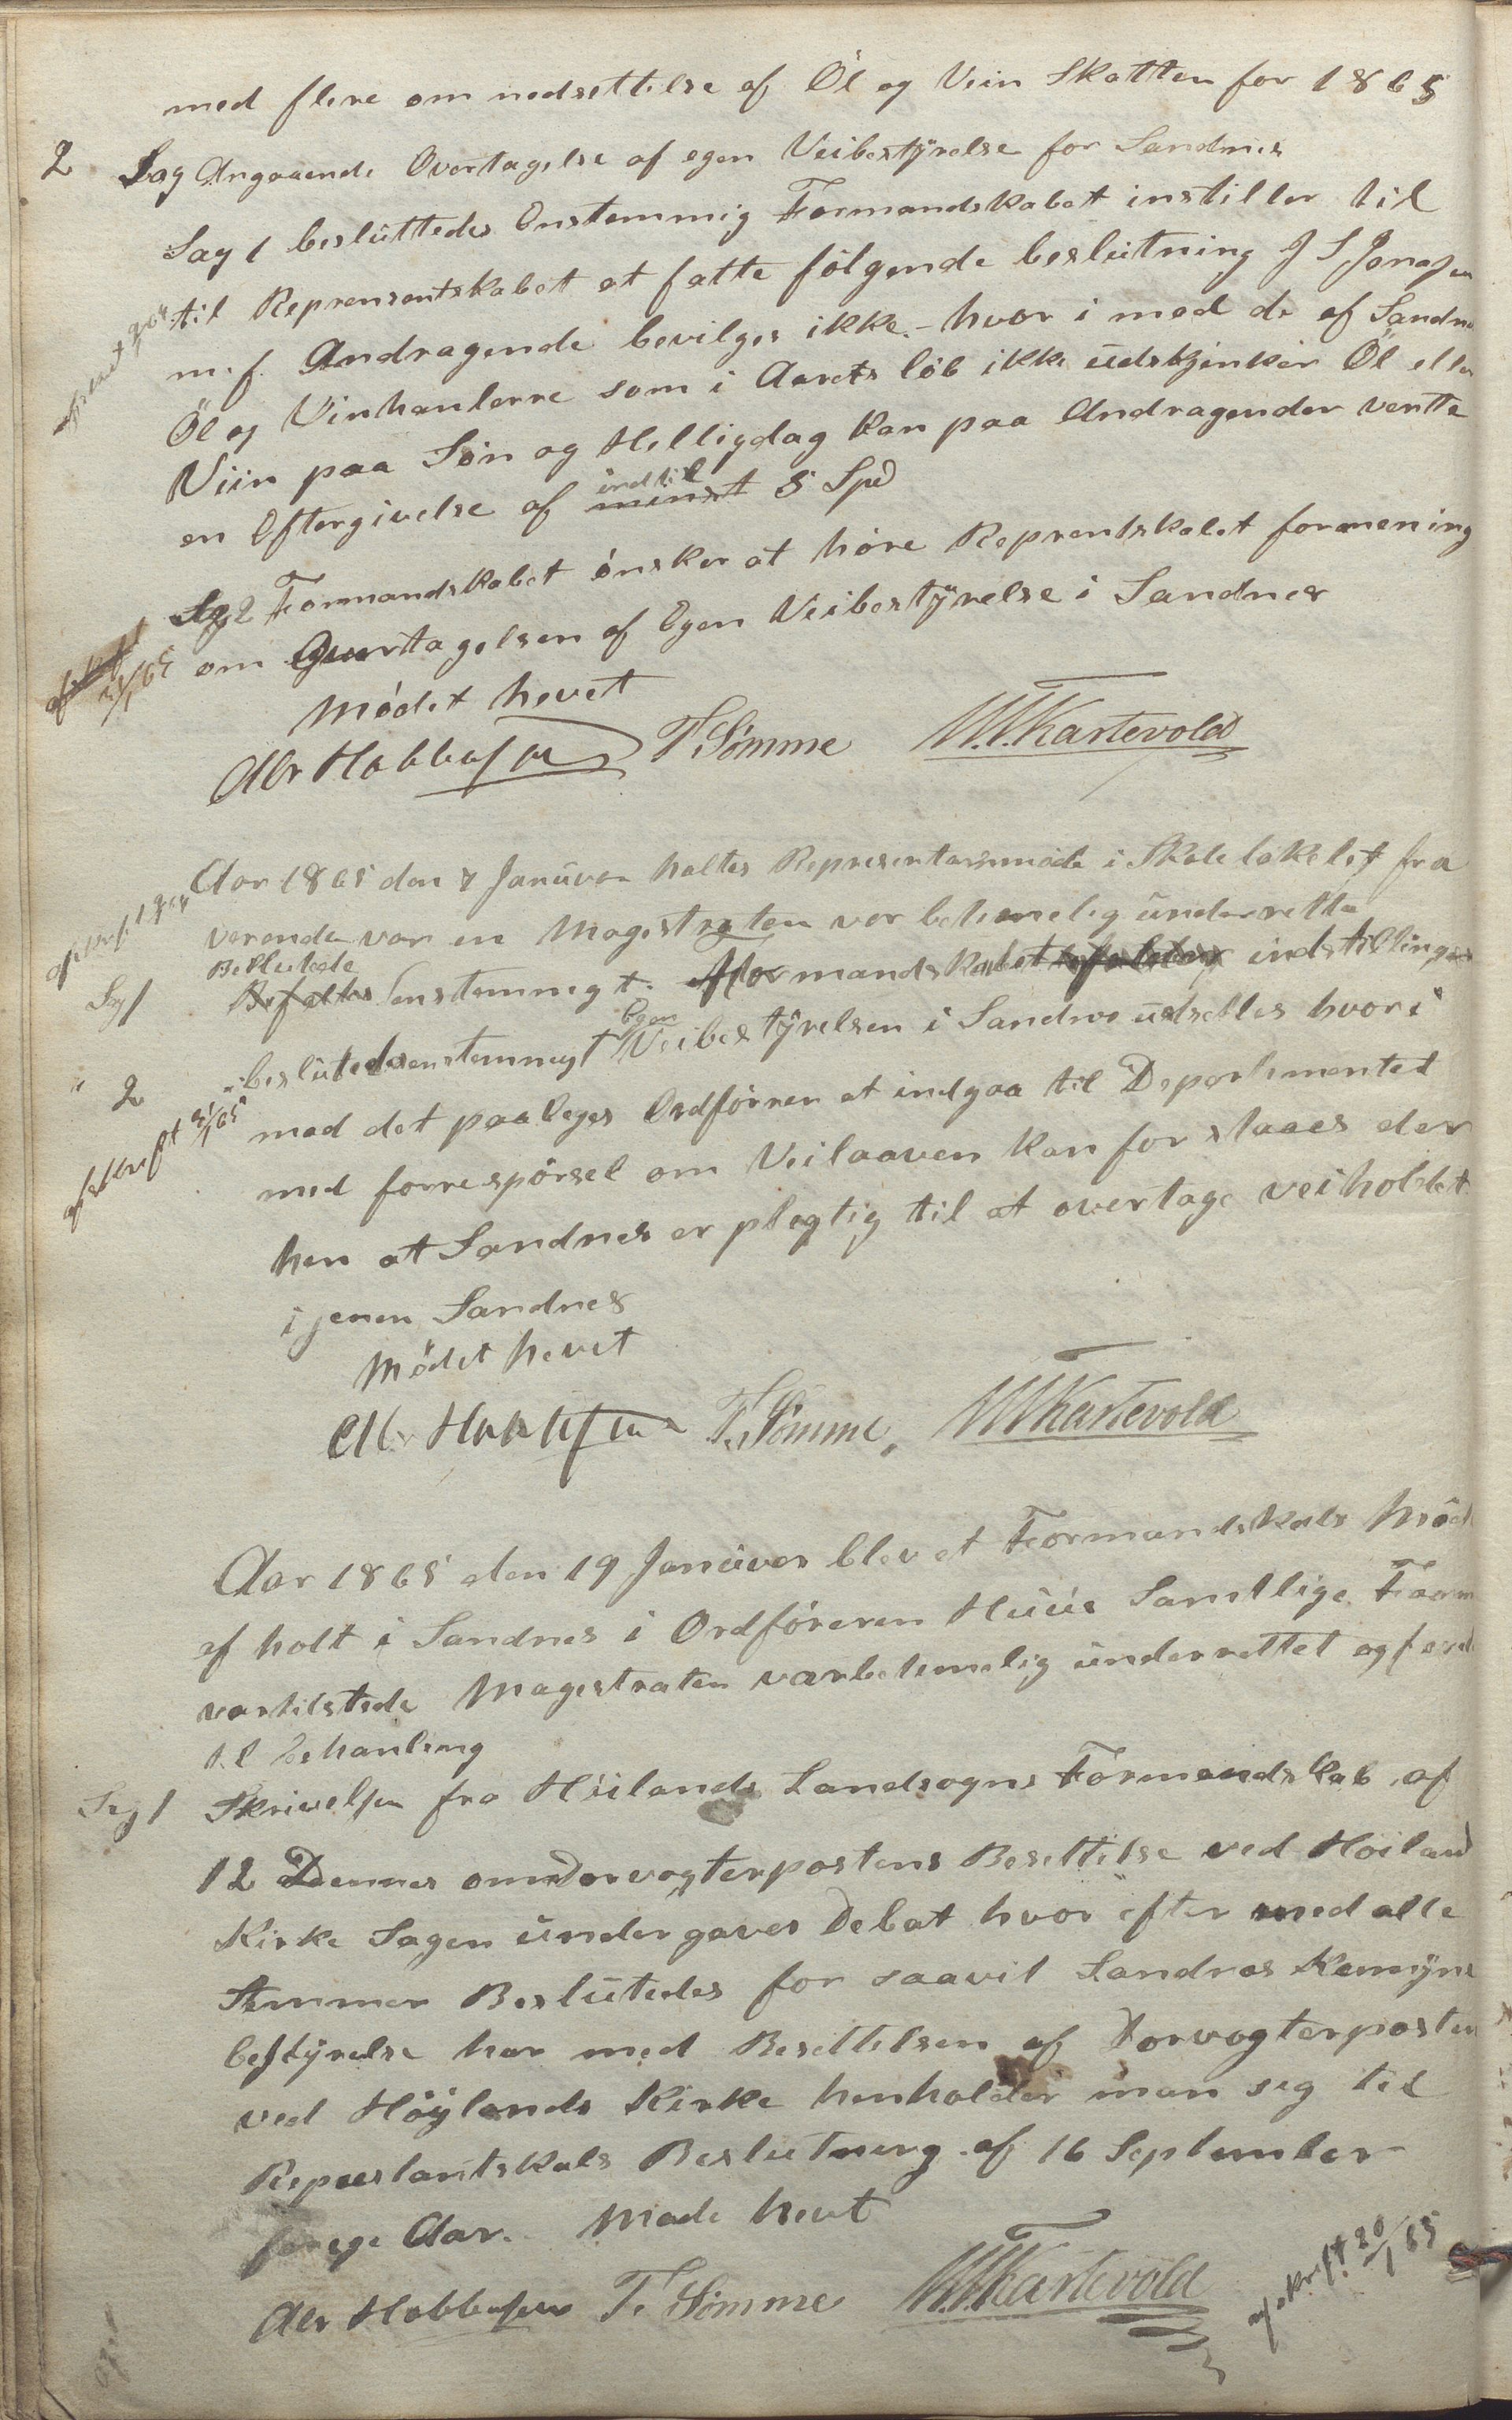 med flere om nedsettelse af Öl og Viin Skatten for 1865
2 Sag Angaaende Overtagelse af egen Veibestÿrelse for Sandnes
Sag 1 besluttedes Enstemmig Formandskabet instiller til
til Reprensentskabet at fatte følgende beslutning J S Jonassen
m.f. Andragende bevilges ikke.- hvor i mod de af Sandnes
Öl og Vinhanlerre som i Aarets löb ikke udskjenker Öl eller
Viin paa Søn og Helligdag kan paa Andragender vente
en Eftergivelse af minst indtil 5 Spd
Sag 2 Formandskabet ønsker at høre Reprentskabet formening
om Overtagelsen af Egen Veibestÿrelse i Sandnes
Mødet hevet
T. Sömme
Aar 1865 den 7 Januar holtes Representansmøde i Skole lokelet fra
verende var en Magestraten var betimelig underrette
Sag 1 Befaltes Besluttede Enstemmegt. Formandskabet indstillinger
" 2 beslutedes enstemmegt Egen Veibestÿrelsen i Sandnes udsettes hvor i
afskrift 21/1 65
med det paaleges Ordførrer at indgaa til Departementet
med forrespörsel om Veilaaven kan for staaes der
hen at Sandnes er plegtig til at overtage veiholdet
i jenem Sandnes
Mödet hevet
T. Sömme,
Aar 1865 den 19 Januar blev et Formandskabs Möde
af holt i Sandnes i Ordføreren Huus Samtlige Form
var tilstede Magestraten var betimelig underrettet og
til behanling
Sag 1 Skrivelsen fra Höilands Landsogns Formandskab af
12 Dennes om Dorvogterpostens Besettelse ved Höiland
Kirke Sagen undergaves Debat hvor efter med alle
Stemmer Beslutedes for saavit Sandnes Komÿne
bestÿrelse har med Besettelsen af Dorvogterposten
ved Höÿlands Kirke henholder man seg til
Beslutning af 16 September
forege Aar. Møde hevet
T. Sömme
afskrift 20/1 65